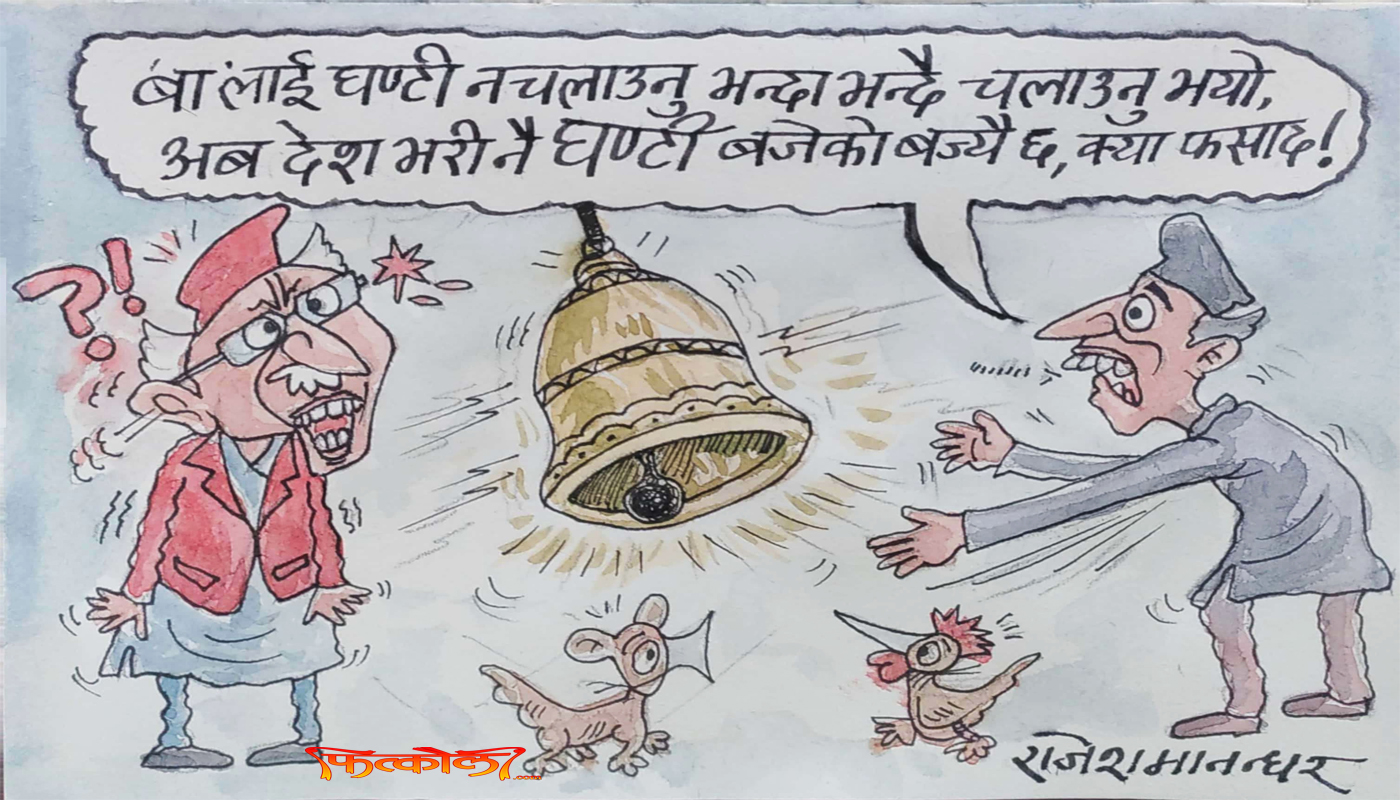 बा लाई घण्टी नचलाउनु भन्दा भन्दै चलाउनु भयो,
अब देश भरी नै घण्टी बजेको बज्यै छ, क्या फसाद!
?!
फित्कौली....
राजेश मानन्धर